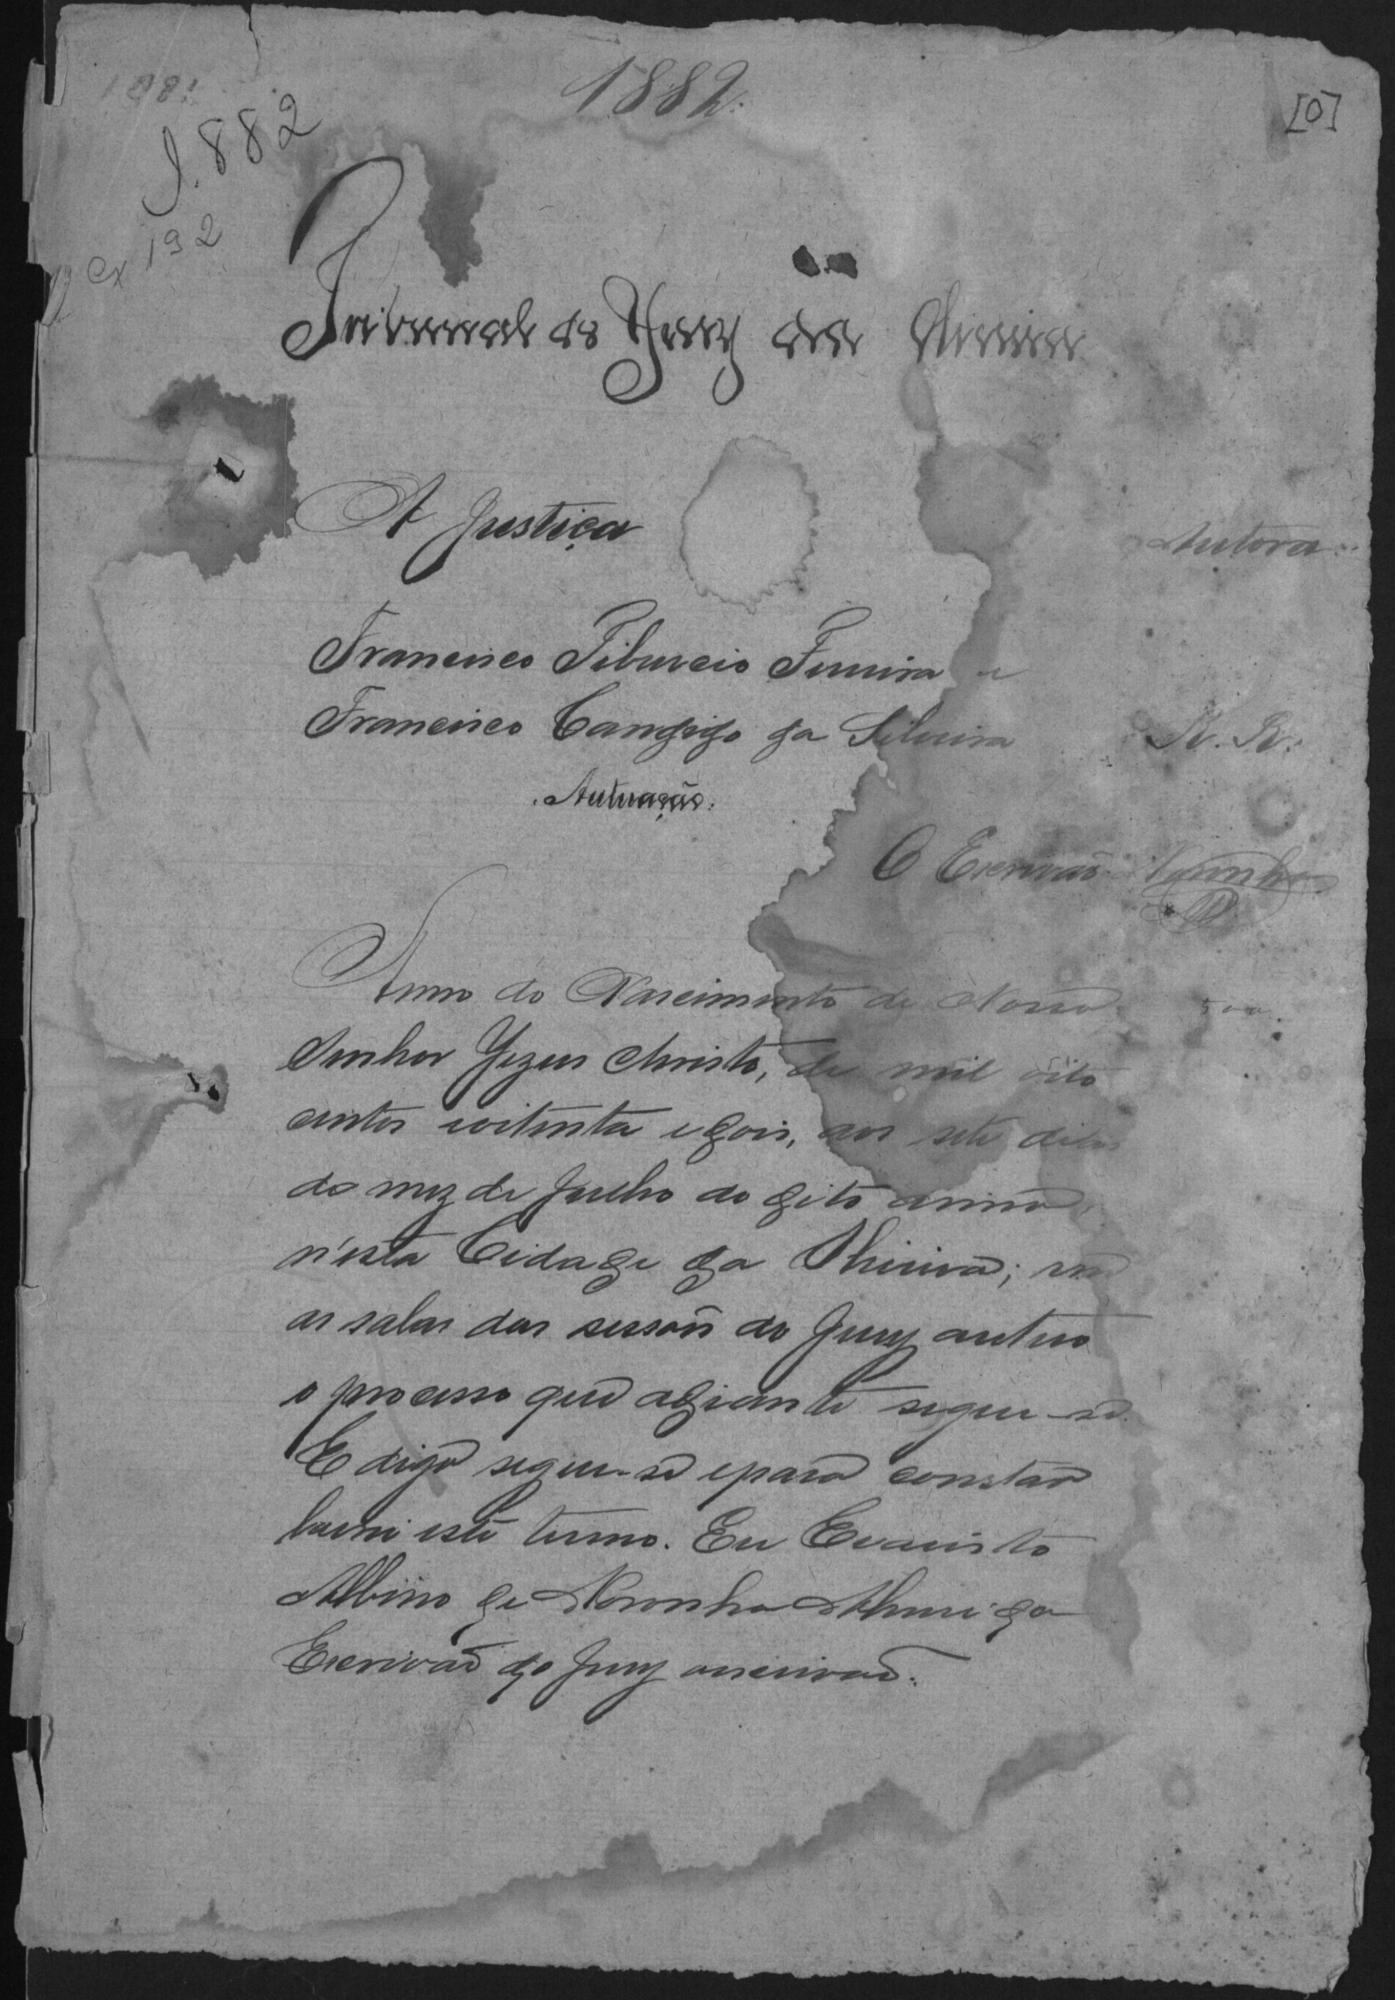 1882.
[0]
1.882
cx 192
Tribunal do Jury da
A Justiça Autora.
Francisco Tiburcio Ferreira e
Francisco Candido da Silveira R. R.
Autuação.
O Escrivão
Anno do Nascimento de Nosso
Senhor Jezus Christo, de mil oito
centos e oitenta e dois, aos sete dias
do mez de Julho do dito anno,
n'esta Cidade da
as salas das sessões do Jury autuo
o processo que adiante segue-se.
E digo segue-se e para constar
lavrei este termo. Eu Evaristo
Albino de Noronha Almeida
Escrivão do Jury